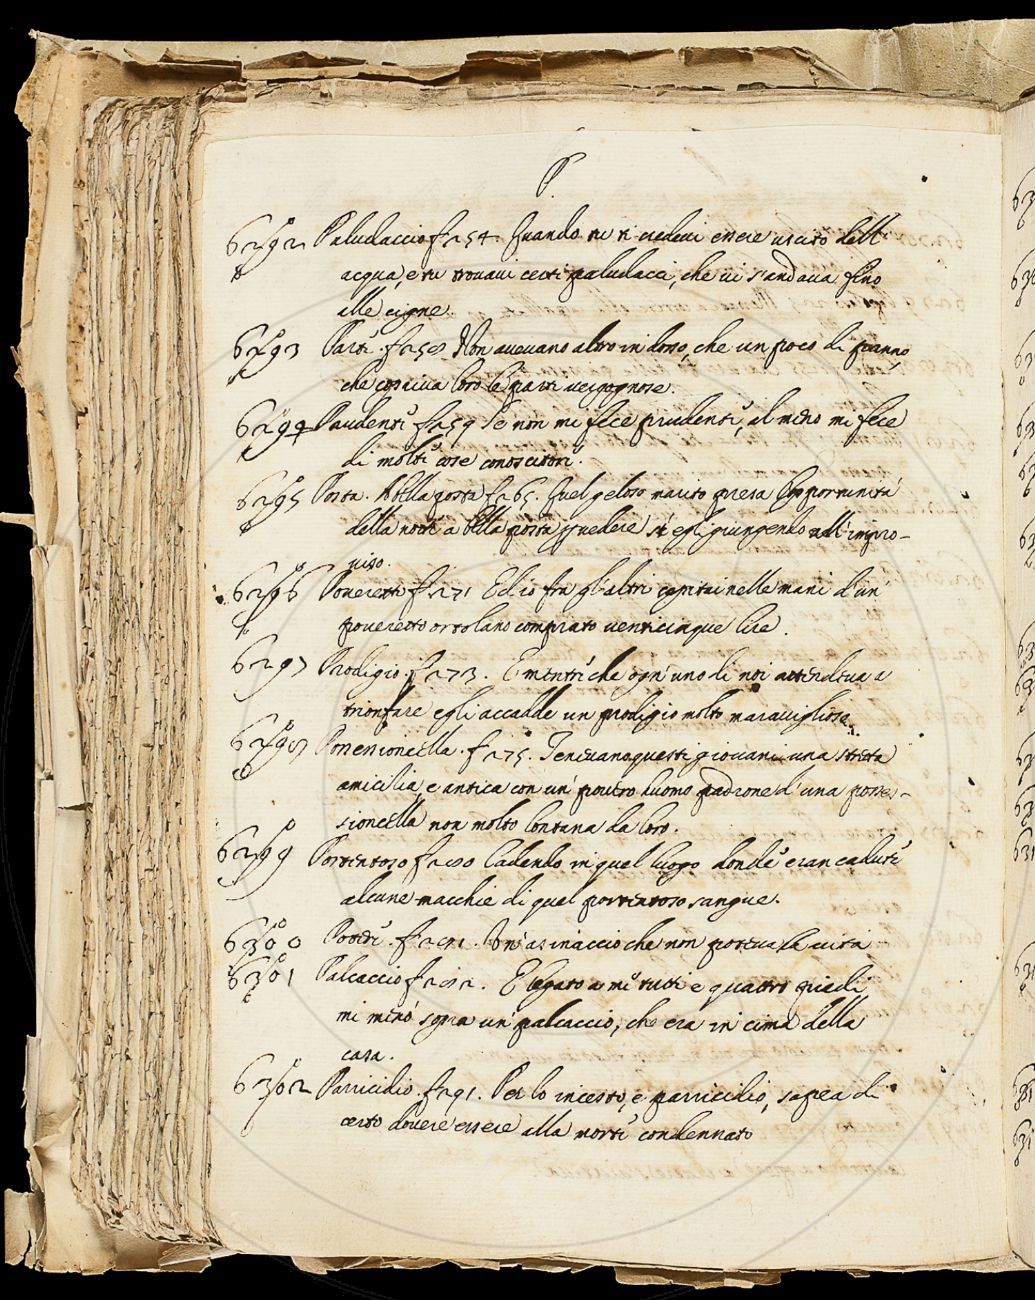 P.
6292 Paludaccio f. 254. Quando tu ti credevi essere uscito dell'
acqua, e tu trovavi certi paludacci, che vi s'andava fino
alle cigne.
6293 Parti. f. 258. Non avevano altro in dosso, che un poco di panno,
che copriva loro le parti vergognose.
6294 Prudenti f. 259 Se non mi fece prudenti, al meno mi fece
di molti cose conoscitori.
6295 Posta. A bella posta f. 265. Quel geloso marito presa l'opportunità
della notti a bella posta p vedere s'egli giungendo all'impro-
viso.
6296 Poveretto f. 271 Ed io fra gl'altri capitai nelle mani d'un
poveretto ortolano comprato venticinque lire.
6297 Prodigio f. 273. E mentri che ogn'uno di noi attendeva a
trionfare egli accadde un prodigio molto maraviglioso.
6298 Possessioncella. f. 275. Tenevano questi giovani una stretta
amicilia, e antica con un povero huomo padrone d'una posses-
sioncella non molto lontana da loro.
6299 Portentoso f. 280 Cadendo in quel luogo donde eran caduti
alcune macchie di quel portentoso sangue.
6300 f. 281. Un asinaccio che non poteva la vita
6301 Palcaccio f. 282. E legato a mi tutti e quattro piedi
mi minò sopra un palcaccio, che era in cima della
casa.
6302 Parricidio. f. 291. Per lo incesto, e parricidio, sapea di
certo dovere essere alla morti condennato